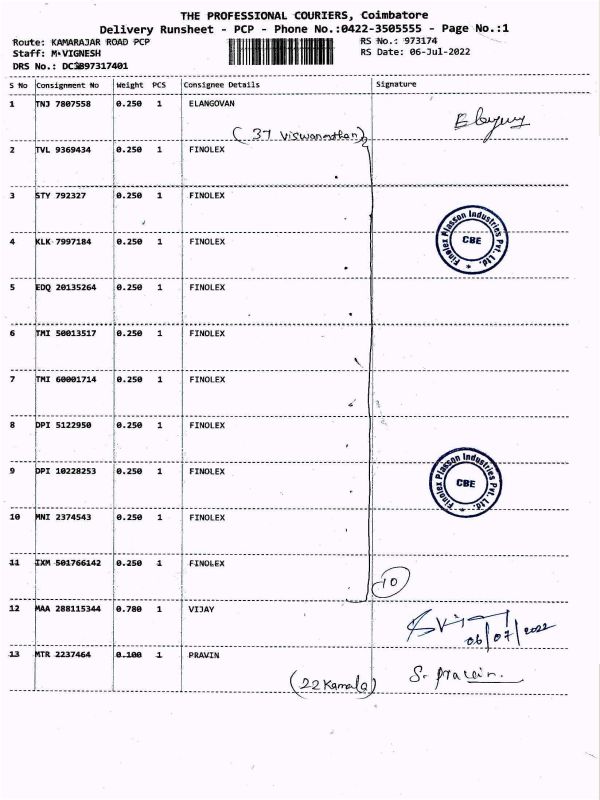 THE PROFESSIONAL COURIERS, Coimbatore
Delivery Runsheet - PCP - Phone No.:0422-3505555 - Page No.:1
Route: KAMARAJAR ROAD PCP
RS No.: 973174
Staff: M.VIGNESH
RS Date: 06-Jul-2022
DRS No.: DC3897317401
S No Consignment No Weight PCS Consignee Details Signature
1 TNJ 7807558 0.250 1 ELANGOVAN
(37 Viswanathan)
2 TVL 9369434 0.250 1 FINOLEX
3 STY 792327 0.250 1 FINOLEX
4 KLK 7997184 0.250 1 FINOLEX
Finolex Plasson Industries Pvt. Ltd. * CBE
5 EDQ 20135264 0.250 1 FINOLEX
6 TMI 50013517 0.250 1 FINOLEX
7 TMI 60001714 0.250 1 FINOLEX
8 DPI 5122950 0.250 1 FINOLEX
9 DPI 10228253 0.250 1 FINOLEX
Finolex Plasson Industries Pvt. Ltd. * CBE
10 MNI 2374543 0.250 1 FINOLEX
11 IXM 501766142 0.250 1 FINOLEX
10
12 MAA 288115344 0.780 1 VIJAY
06/07/2022
13 MTR 2237464 0.100 1 PRAVIN
(22 Kamala) S. Pravin.